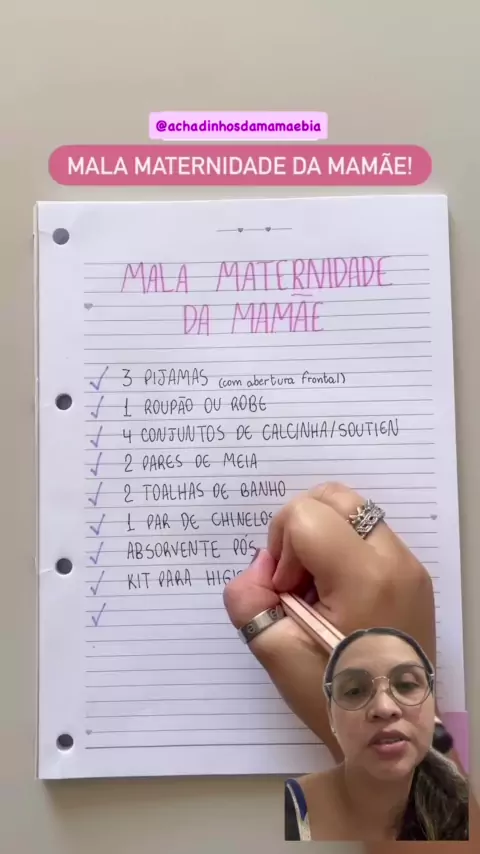 @achadinhosdamamaebia
MALA MATERNIDADE DA MAMÃE!
MALA MATERNIDADE
DA MAMÃE
3 PIJAMAS (com abertura frontal)
1 ROUPÃO OU ROBE
4 CONJUNTOS DE CALCINHA/SOUTIEN
2 PARES DE MEIA
2 TOALHAS DE BANHO
1 PAR DE CHINELOS
ABSORVENTE PÓS
KIT PARA